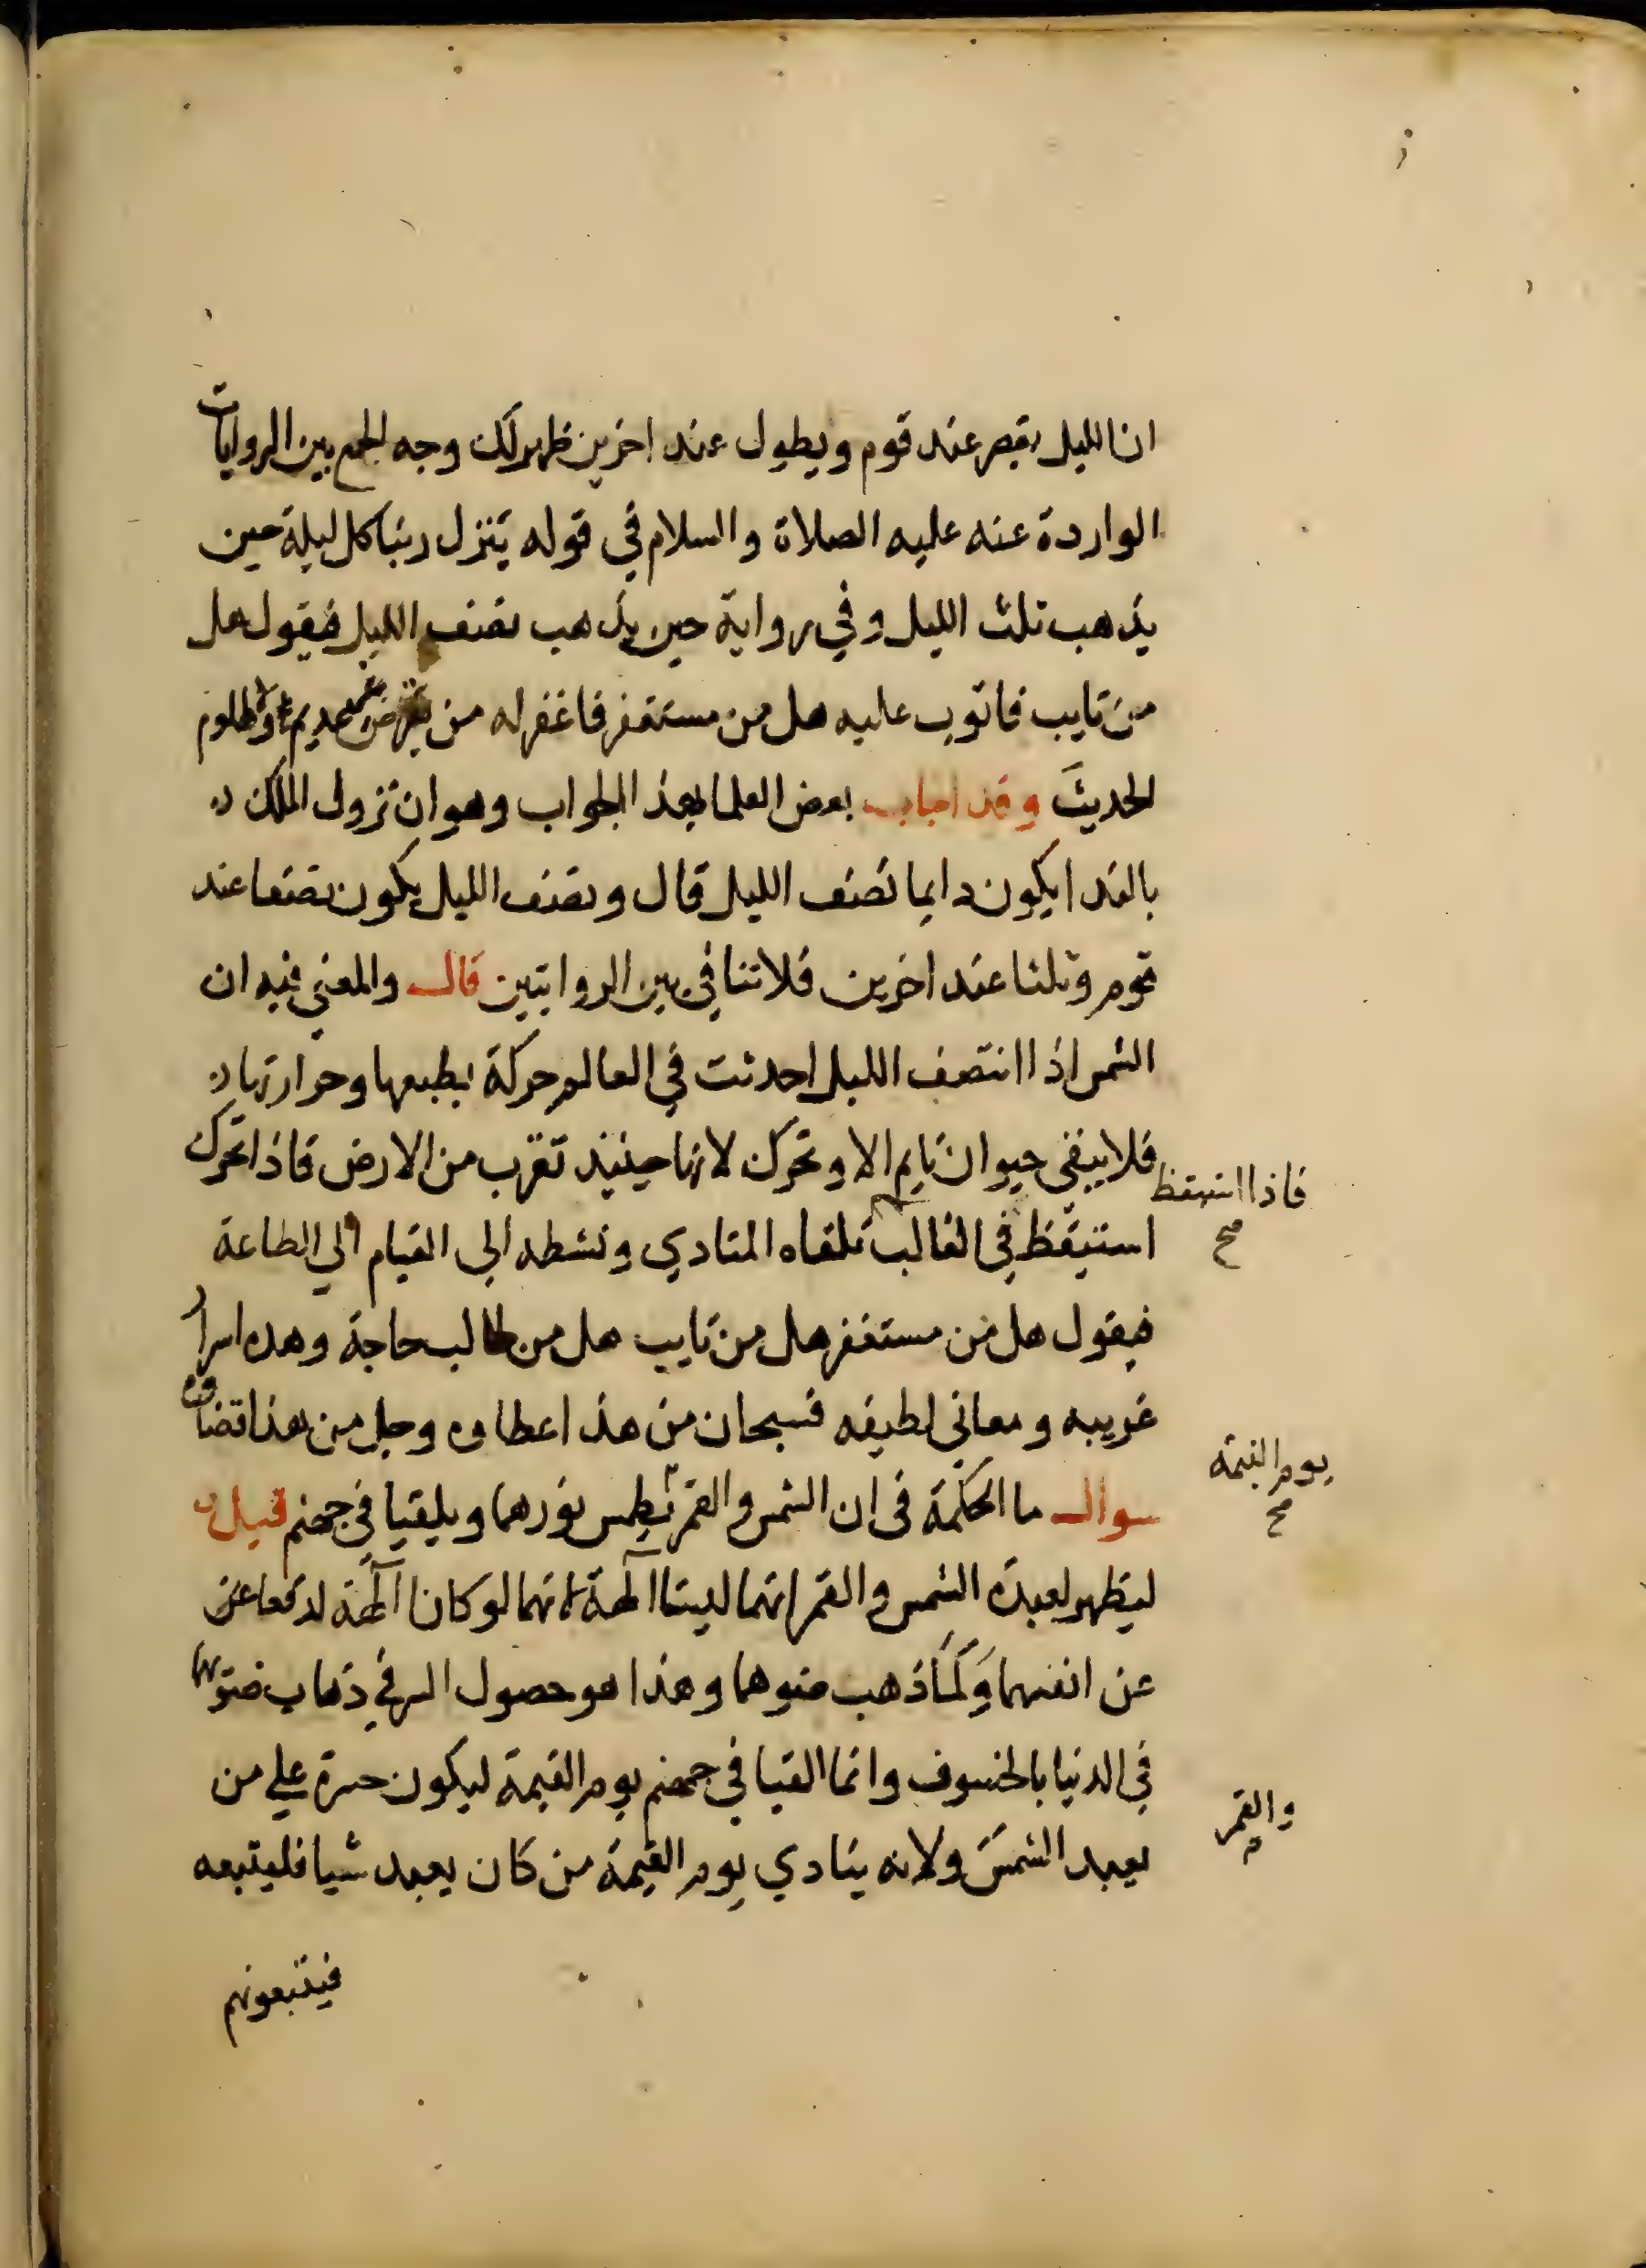 ان الليل يقصر عند قوم ويطول عند اخرين ظهر لك وجه الجمع بين الروايات
الواردة عنه عليه الصلاة والسلام في قوله يتنزل ربنا كل ليلة حين
يذهب ثلث الليل وفي رواية حين يذهب نصف الليل فيقول هل
من تايب فاتوب عليه هل من مستغفر فاغفر له من يقرض غير عديم ولا ظلوم
الحديث وقد اجاب بعض العلما بهذا الجواب وهو ان نزول الملك
بالندا يكون دايما نصف الليل قال ونصف الليل يكون نصفا عند
قوم وثلثا عند اخرين فلا تنافي بين الروايتين قال والمعني فيه ان
الشمس اذا انتصف الليل احدثت في العالم حركة بطبعها وحرارتها
فلا يبقي حيوان نايم الا وتحرك لانها حينيذ تقرب من الارض فاذا تحرك
استيقظ في الغالب تلقاه المنادي ونشطه الي القيام الي الطاعة
فاذا استيقظ
صح
فيقول هل من مستغفر هل من تايب هل من طالب حاجة وهده اسرار
غريبه ومعاني لطيفه فسبحان من هذا عطاوه وجل من هذا قضاوه
سوال ما الحكمة في ان الشمس والقمر يطمس نورهما ويلقيا في جهنم قيل
يوم القيمة
صح
ليظهر لعبدة الشمس والقمر انهما ليستا آلهة لانهما لو كانا آلهة لدفعا عن
عن انفسهما ولما ذهب ضوهما وهذا هو حصول السر في ذهاب ضوهما
في الدنيا بالخسوف وانما القيا في جهنم يوم القيمة ليكون حسرة علي من
يعبد الشمس ولانه ينادي يوم القيمة من كان يعبد شيا فليتبعه
والقمر
فيتبعونهم